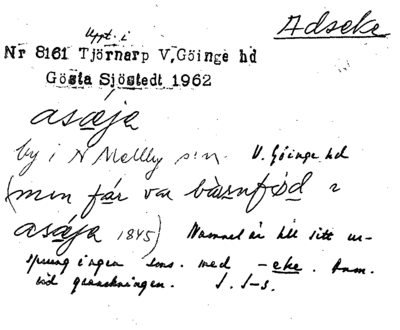 Adseke
Uppt. i
Nr 8161 Tjörnarp V.Göinge hd
Gösta Sjöstedt 1962
asǽja
by i N Mellby s:n. V. Göinge hd
(min fár var bàrnfǿd i
asǽja 1845) Namnet är till sitt ur-
sprung ingen sms. med -eke. Anm.
vid granskningen. J. S-s.